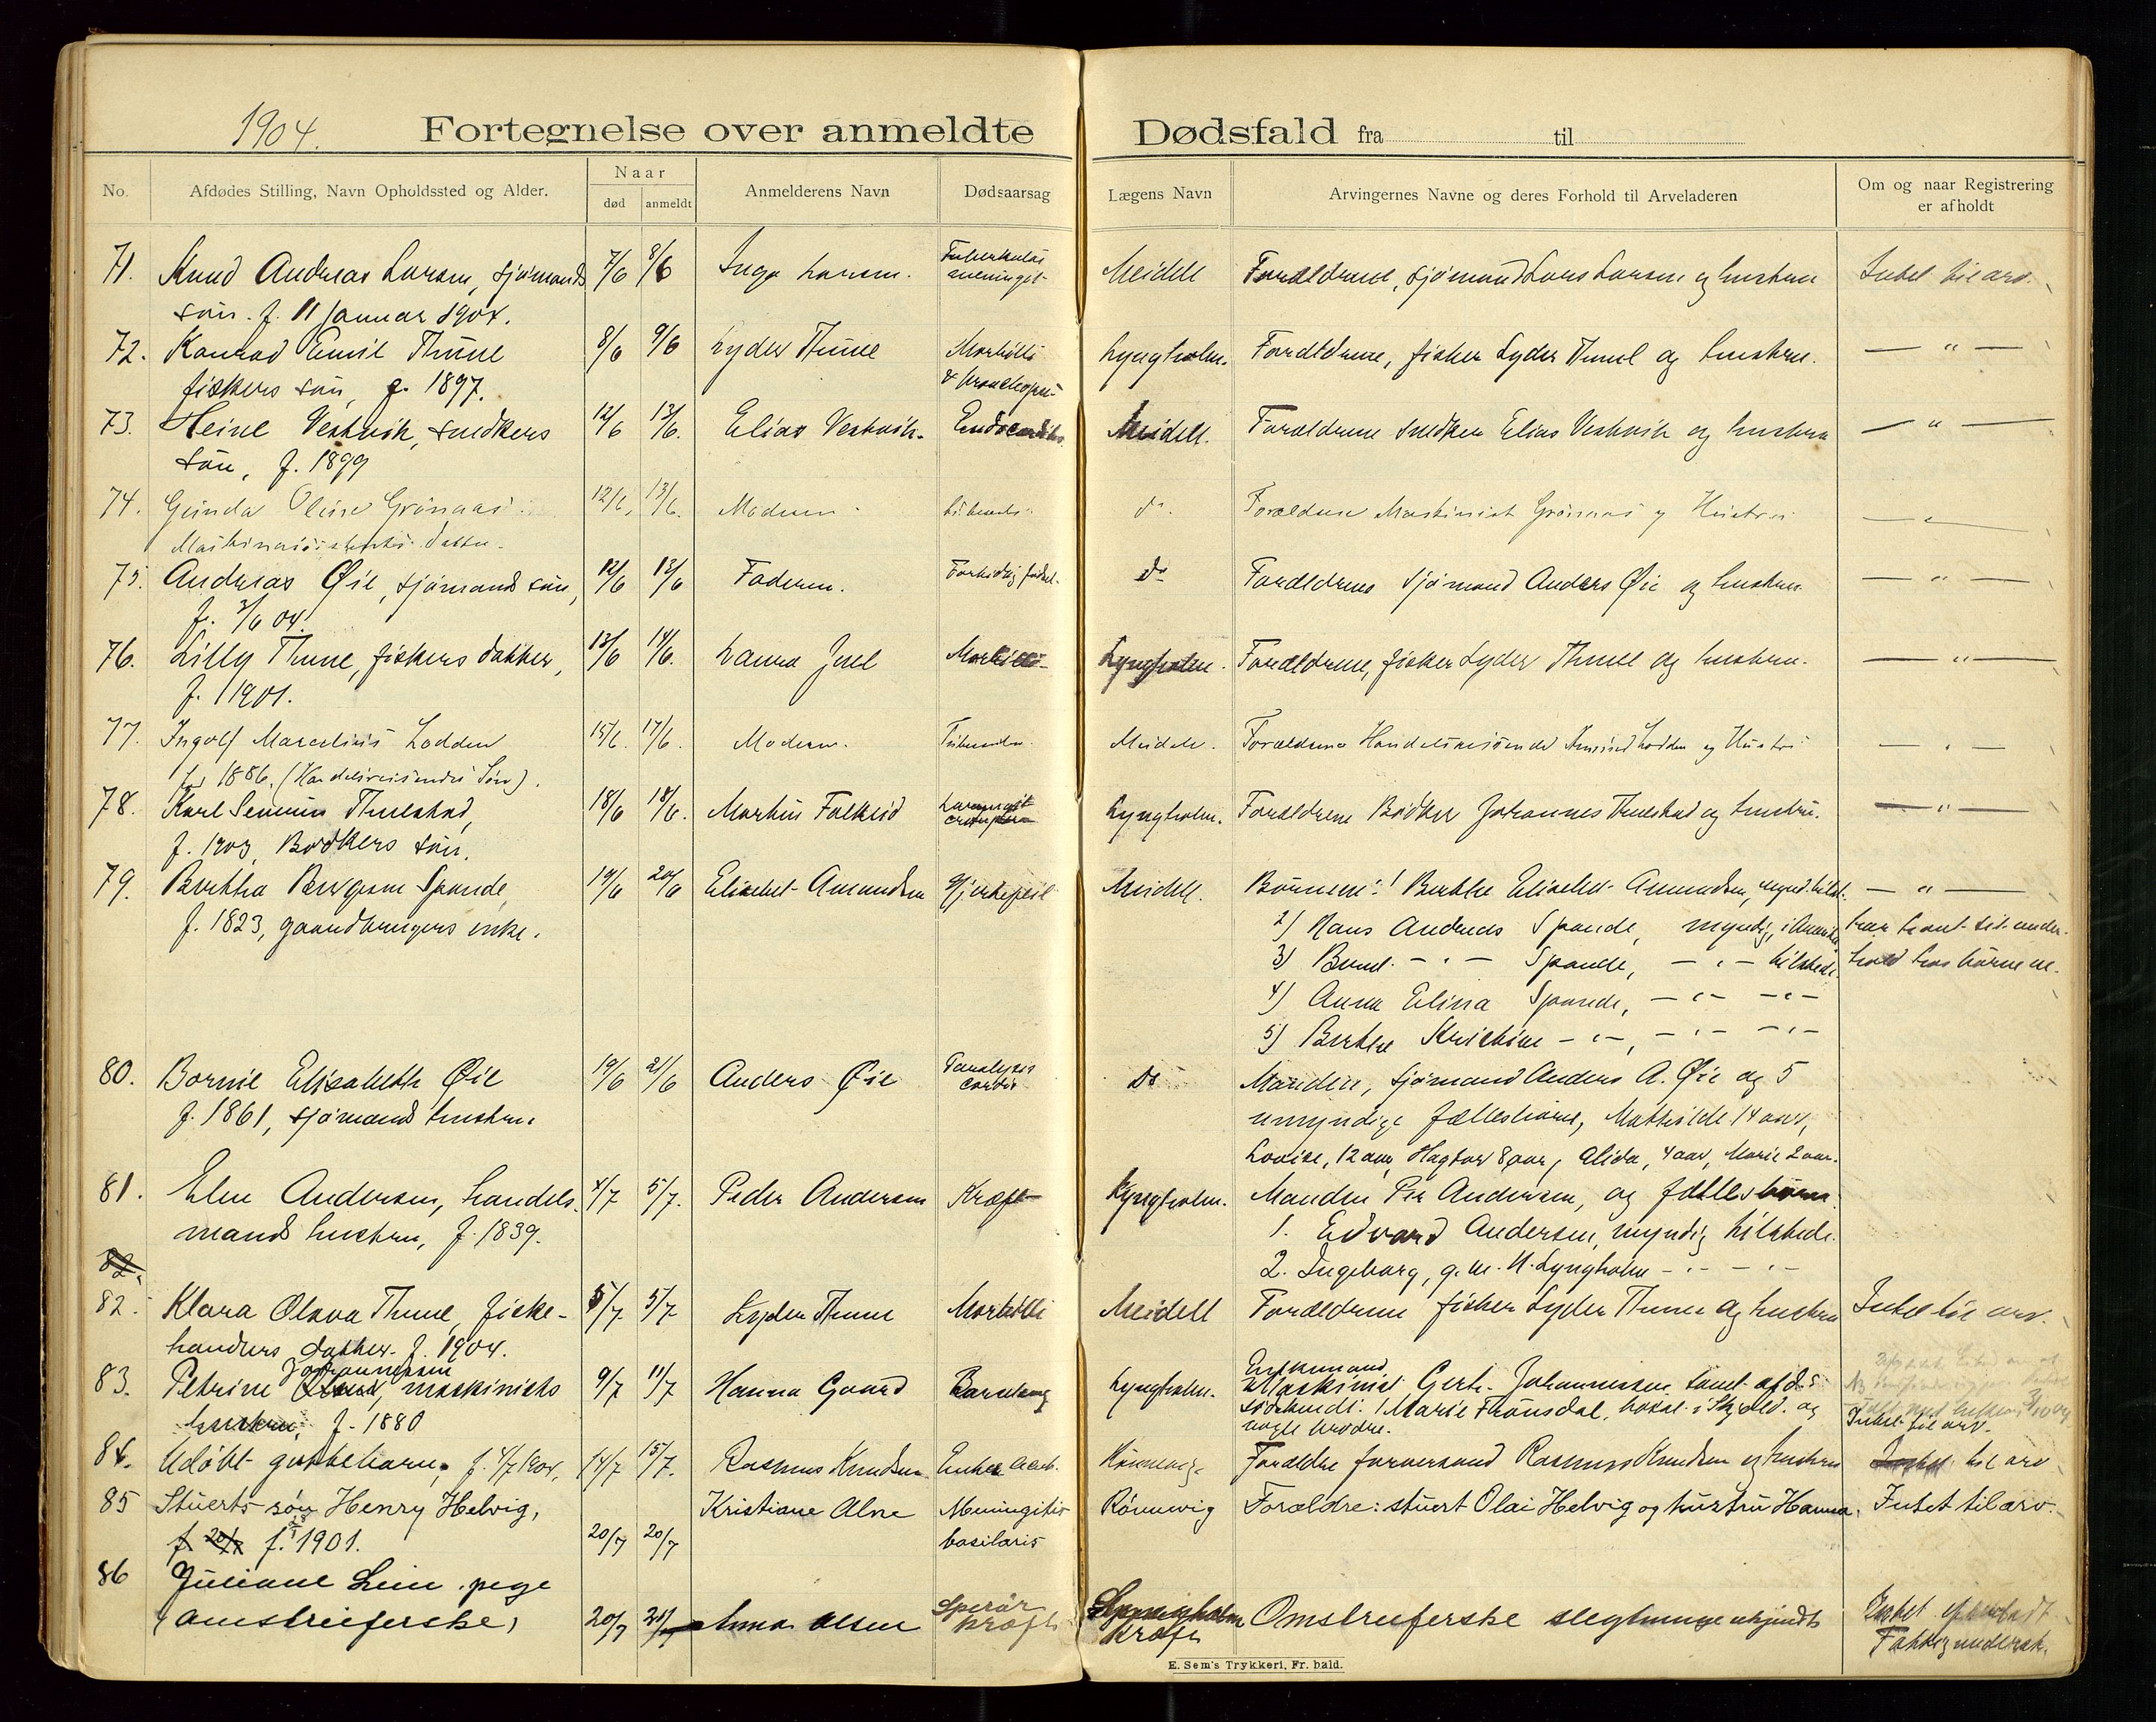 1904.
Fortegnelse over anmeldte Dødsfald fra til
No.
Afdødes Stilling, Navn Opholdssted og Alder.
Naar
død
anmeldt
Anmelderens Navn
Dødsaarsag
Lægens Navn
Arvingernes Navne og deres Forhold til Arveladeren
Om og naar Registrering
er afholdt
71. Knud Andreas Larsen, sjømands 7/6 8/6 Inga Larsen. Tuberkuløs Meidell Forældrene, sjømand Lars Larsen og hustru Intet til arv.
søn. f. 11 Januar 1904. meningit
72. Konrad Emil Thune 8/6 9/6 Lyder Thune Morbilli Lyngholm. Forældrene, fisker Lyder Thune og hustru. — " —
fiskers søn, f. 1897. & bronchopn
73. Heine Vestvik, snedkers 12/6 13/6. Elias Vestvik. Endocarditis Meidell. Forældrene snedker Elias Vestvik og hustru — " —
søn, f. 1899
74. Gunda Oline Grønaas 12/6, 13/6. Moderen do. Forældrene Maskinist Grønaas og Hustru — " —
Maskinassistents datter
75. Andreas Øie, sjømands søn, 12/6 13/6 Faderen. Fortidig fødsel. Do Forældrene Sjømand Anders Øie og hustru — " —
f. 3/6 04.
76. Lilly Thune, fiskers datter, 13/6 14/6. Laura Juel Morbilli Lyngholm. Forældrene, fisker Lyder Thune og hustru. — " —
f. 1901.
77. Ingolf Marselius Lodden 15/6. 17/6. Moderen. Meidell. Forældrene Handelsreisende Lodden og Hustru — " —
f. 1886. (Handelsreisendes Søn).
78. Karl Thuestad, 18/6 18/6. Markus Falkeid Laryngit Lyngholm. Forældrene Bødker Johannes Thuestad og hustru. — " —
f. 1903, Bødkers søn.
79. Berthe Spande, 19/6 20/6 Elisabet Amundsen Hjertefeil Meidell. Børnene: 1 Berthe Elisabet Amundsen, mynd. tilst. — " —
f. 1823, gaardbrugers enke. 2) Hans Andreas Spande, myndig, i Amerika har havt sit under-
3) — " — Spande, — " — tilstede. hold hos børnene.
4) Anna Elina Spande, — " — — " —
5) Berthe Kristine — " —, — " — — " —
80. Elisabeth Øie 19/6 21/6 Anders Øie Paralysis Do Manden, sjømand Anders A. Øie og 5
f. 1861, sjømands hustru cordis umyndige fællesbørn, Mathilde 14 aar,
Lovise, 12 aar, Hagbar 8 aar, Alida, 4 aar, Marie 2 aar.
81. Elen Andersen, handels- 4/7 5/7. Peder Andersen Kræft Lyngholm. Manden Per Andersen, og fællesbørn
mands hustru, f. 1839. 1. Edvard Andersen, myndig tilstede.
82. 2. Ingeborg, g. m. Lyngholm — " — — " —
82. Klara Olava Thune, fiske- 5/7 5/7 Lyder Thune Morbilli Meidell Forældrene fisker Lyder Thune og hustru Intet til arv.
handlers datter. f. 1904.
83. Petrine Johannessen maskinists 9/7 11/7 Hanna Gaard Barselseng Lyngholm. Enkemand Maskinist Gerh. Johannessen samt afd.s
hustru, f. 1880 1 Marie Frønsdal, bosat i Skjold. og Intet til arv.
nogle brødre.
84. Udøbt guttebarn. f. 4/7 1904. 14/7 15/7. Rasmus Knudsen Forældre Rasmus Knudsen og hustru Intet til arv
85 Stuerts søn Henry Helvig, Kristiane Alne Meningitis Rønnevig Forældre: stuert Olai Helvig og hustru Hanna. Intet til arv.
f. 20/7 f. 1901. 20/7 20/7 basilaris
86 Juliane Lien pige
(omstreiferske) 20/7 21/7 Anna Olsen Kræft Omstreiferske slegtninge ukjendt
E. Sem's Trykkeri, Fr. hald.